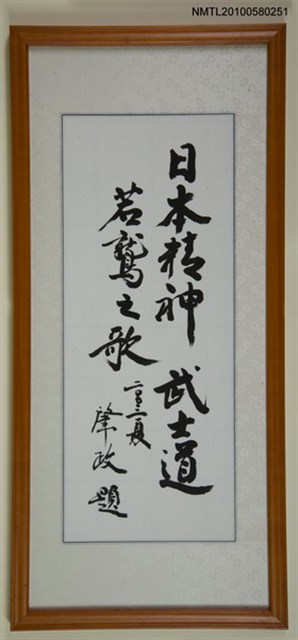 NMTL20100580251
日本精神 武士道
若鷲之歌
二〇〇二夏
肇政 題